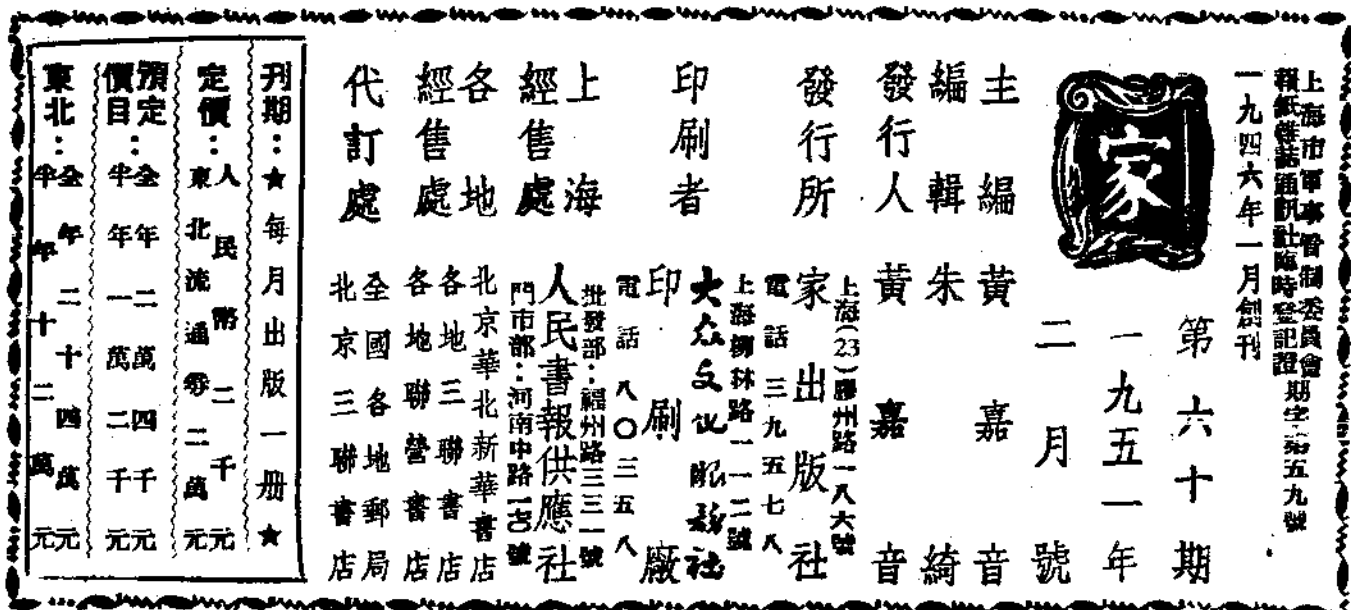 上海市軍事管制委員會
報紙雜誌通訊社臨時登記證期字第五九號
一九四六年一月創刊
家
第六十期
一九五一年
二月號
主編 黃嘉音
編輯 朱綺
發行人 黃嘉音
發行所 家出版社
上海(23)膠州路一八六號
電話 三九五七八
印刷者 大众文化服務社
印刷廠
上海柳林路一一二號
電話 八〇三五八
上海經售處 人民書報供應社
批發部:福州路三三一號
門市部:河南中路一七〇號
各地經售處 北京華北新華書店
各地三聯書店
各地聯營書店
代訂處 全國各地郵局
北京三聯書店
刊期:★每月出版一册★
定價:人民幣二千元
東北流通券二萬元
預定價目:全年二萬四千元
半年一萬二千元
東北:全年二十四萬元
半年十二萬元